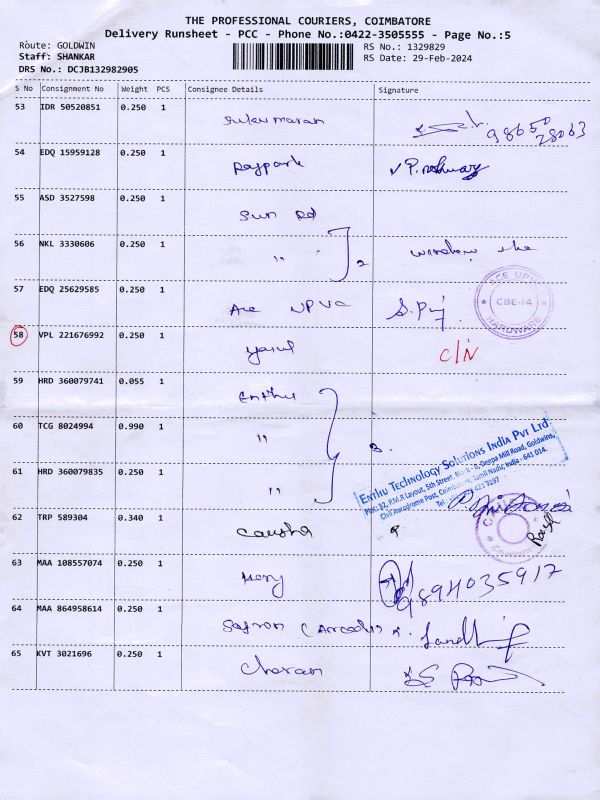 THE PROFESSIONAL COURIERS, COIMBATORE
Delivery Runsheet - PCC - Phone No.:0422-3505555 - Page No.:5
Route: GOLDWIN RS No.: 1329829
Staff: SHANKAR RS Date: 29-Feb-2024
DRS No.: DCJB132982905
S No Consignment No Weight PCS Consignee Details Signature
53 IDR 50520851 0.250 1 Sukumaran 98650
28063
54 EDQ 15959128 0.250 1
55 ASD 3527598 0.250 1 Sun Rd
56 NKL 3330606 0.250 1 " 2
57 EDQ 25629585 0.250 1 Ace UPVC
ACE UPVC
CBE-14
HARDWARE
58 VPL 221676992 0.250 1 C/N
59 HRD 360079741 0.055 1 Enthu
60 TCG 8024994 0.990 1 " 3.
61 HRD 360079835 0.250 1 "
ENTHU TECHNOLOGY SOLUTIONS INDIA PVT LTD
P.M.R Layout, 5th Street, Block - B, Deppa Mill Road, Goldwins,
Civil Aerodrome Post, Coimbatore, Tamil Nadu, India - 641 014.
62 TRP 589304 0.340 1
63 MAA 108557074 0.250 1 9894035917
64 MAA 864958614 0.250 1
65 KVT 3021696 0.250 1 Charan